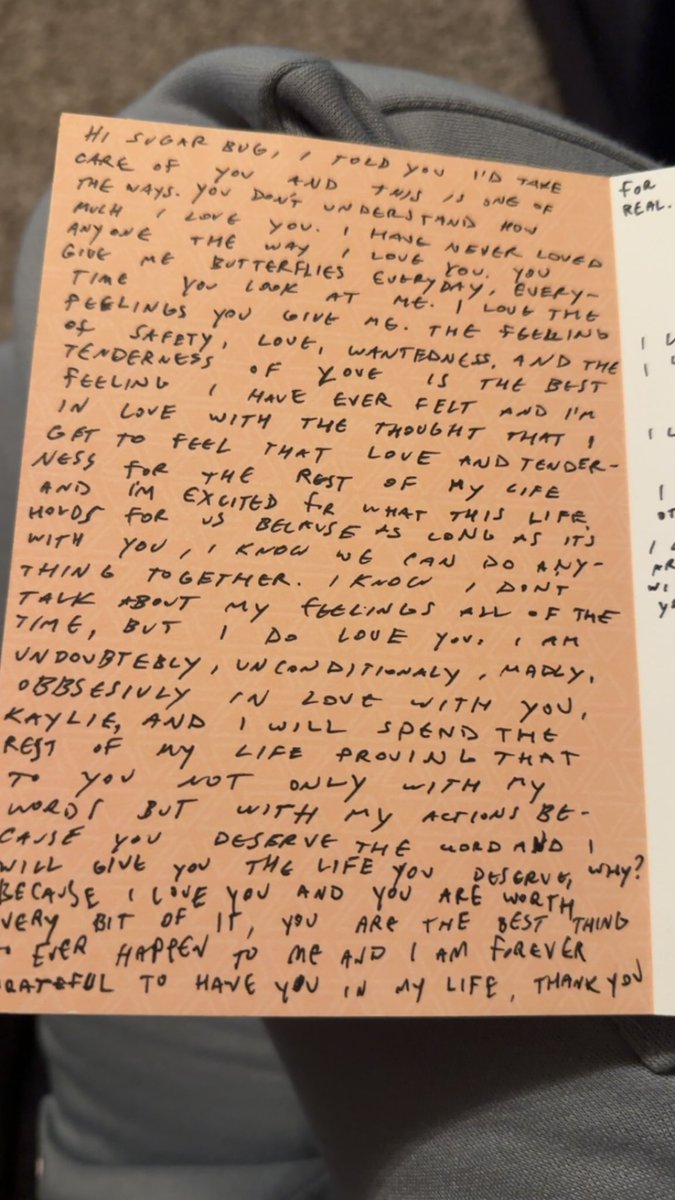 HI SUGAR BUG, I TOLD YOU I'D TAKE
CARE OF YOU AND THIS IS ONE OF
THE WAYS. YOU DON'T UNDERSTAND HOW
MUCH I LOVE YOU. I HAVE NEVER LOVED
ANYONE THE WAY I LOVE YOU. YOU
GIVE ME BUTTERFLIES EVERYDAY, EVERY-
TIME YOU LOOK AT ME. I LOVE THE
FEELINGS YOU GIVE ME. THE FEELING
OF SAFETY, LOVE, WANTEDNESS, AND THE
TENDERNESS OF LOVE IS THE BEST
FEELING I HAVE EVER FELT AND I'M
IN LOVE WITH THE THOUGHT THAT I
GET TO FEEL THAT LOVE AND TENDER-
NESS FOR THE REST OF MY LIFE
AND I'M EXCITED FOR WHAT THIS LIFE
HOLDS FOR US BECAUSE AS LONG AS IT'S
WITH YOU, I KNOW WE CAN DO ANY-
THING TOGETHER. I KNOW I DON'T
TALK ABOUT MY FEELINGS ALL OF THE
TIME, BUT I DO LOVE YOU. I AM
UNDOUBTEBLY, UNCONDITIONALY, MADLY,
OBBSESIVLY IN LOVE WITH YOU,
KAYLIE, AND I WILL SPEND THE
REST OF MY LIFE PROVING THAT
TO YOU NOT ONLY WITH MY
WORDS BUT WITH MY ACTIONS BE-
CAUSE YOU DESERVE THE WORD AND I
WILL GIVE YOU THE LIFE YOU DESERVE, WHY?
BECAUSE I LOVE YOU AND YOU ARE WORTH
VERY BIT OF IT, YOU ARE THE BEST THING
EVER HAPPEN TO ME AND I AM FOREVER
RATEFUL TO HAVE YOU IN MY LIFE, THANK YOU
FOR
REAL.
I
I
I
I
I